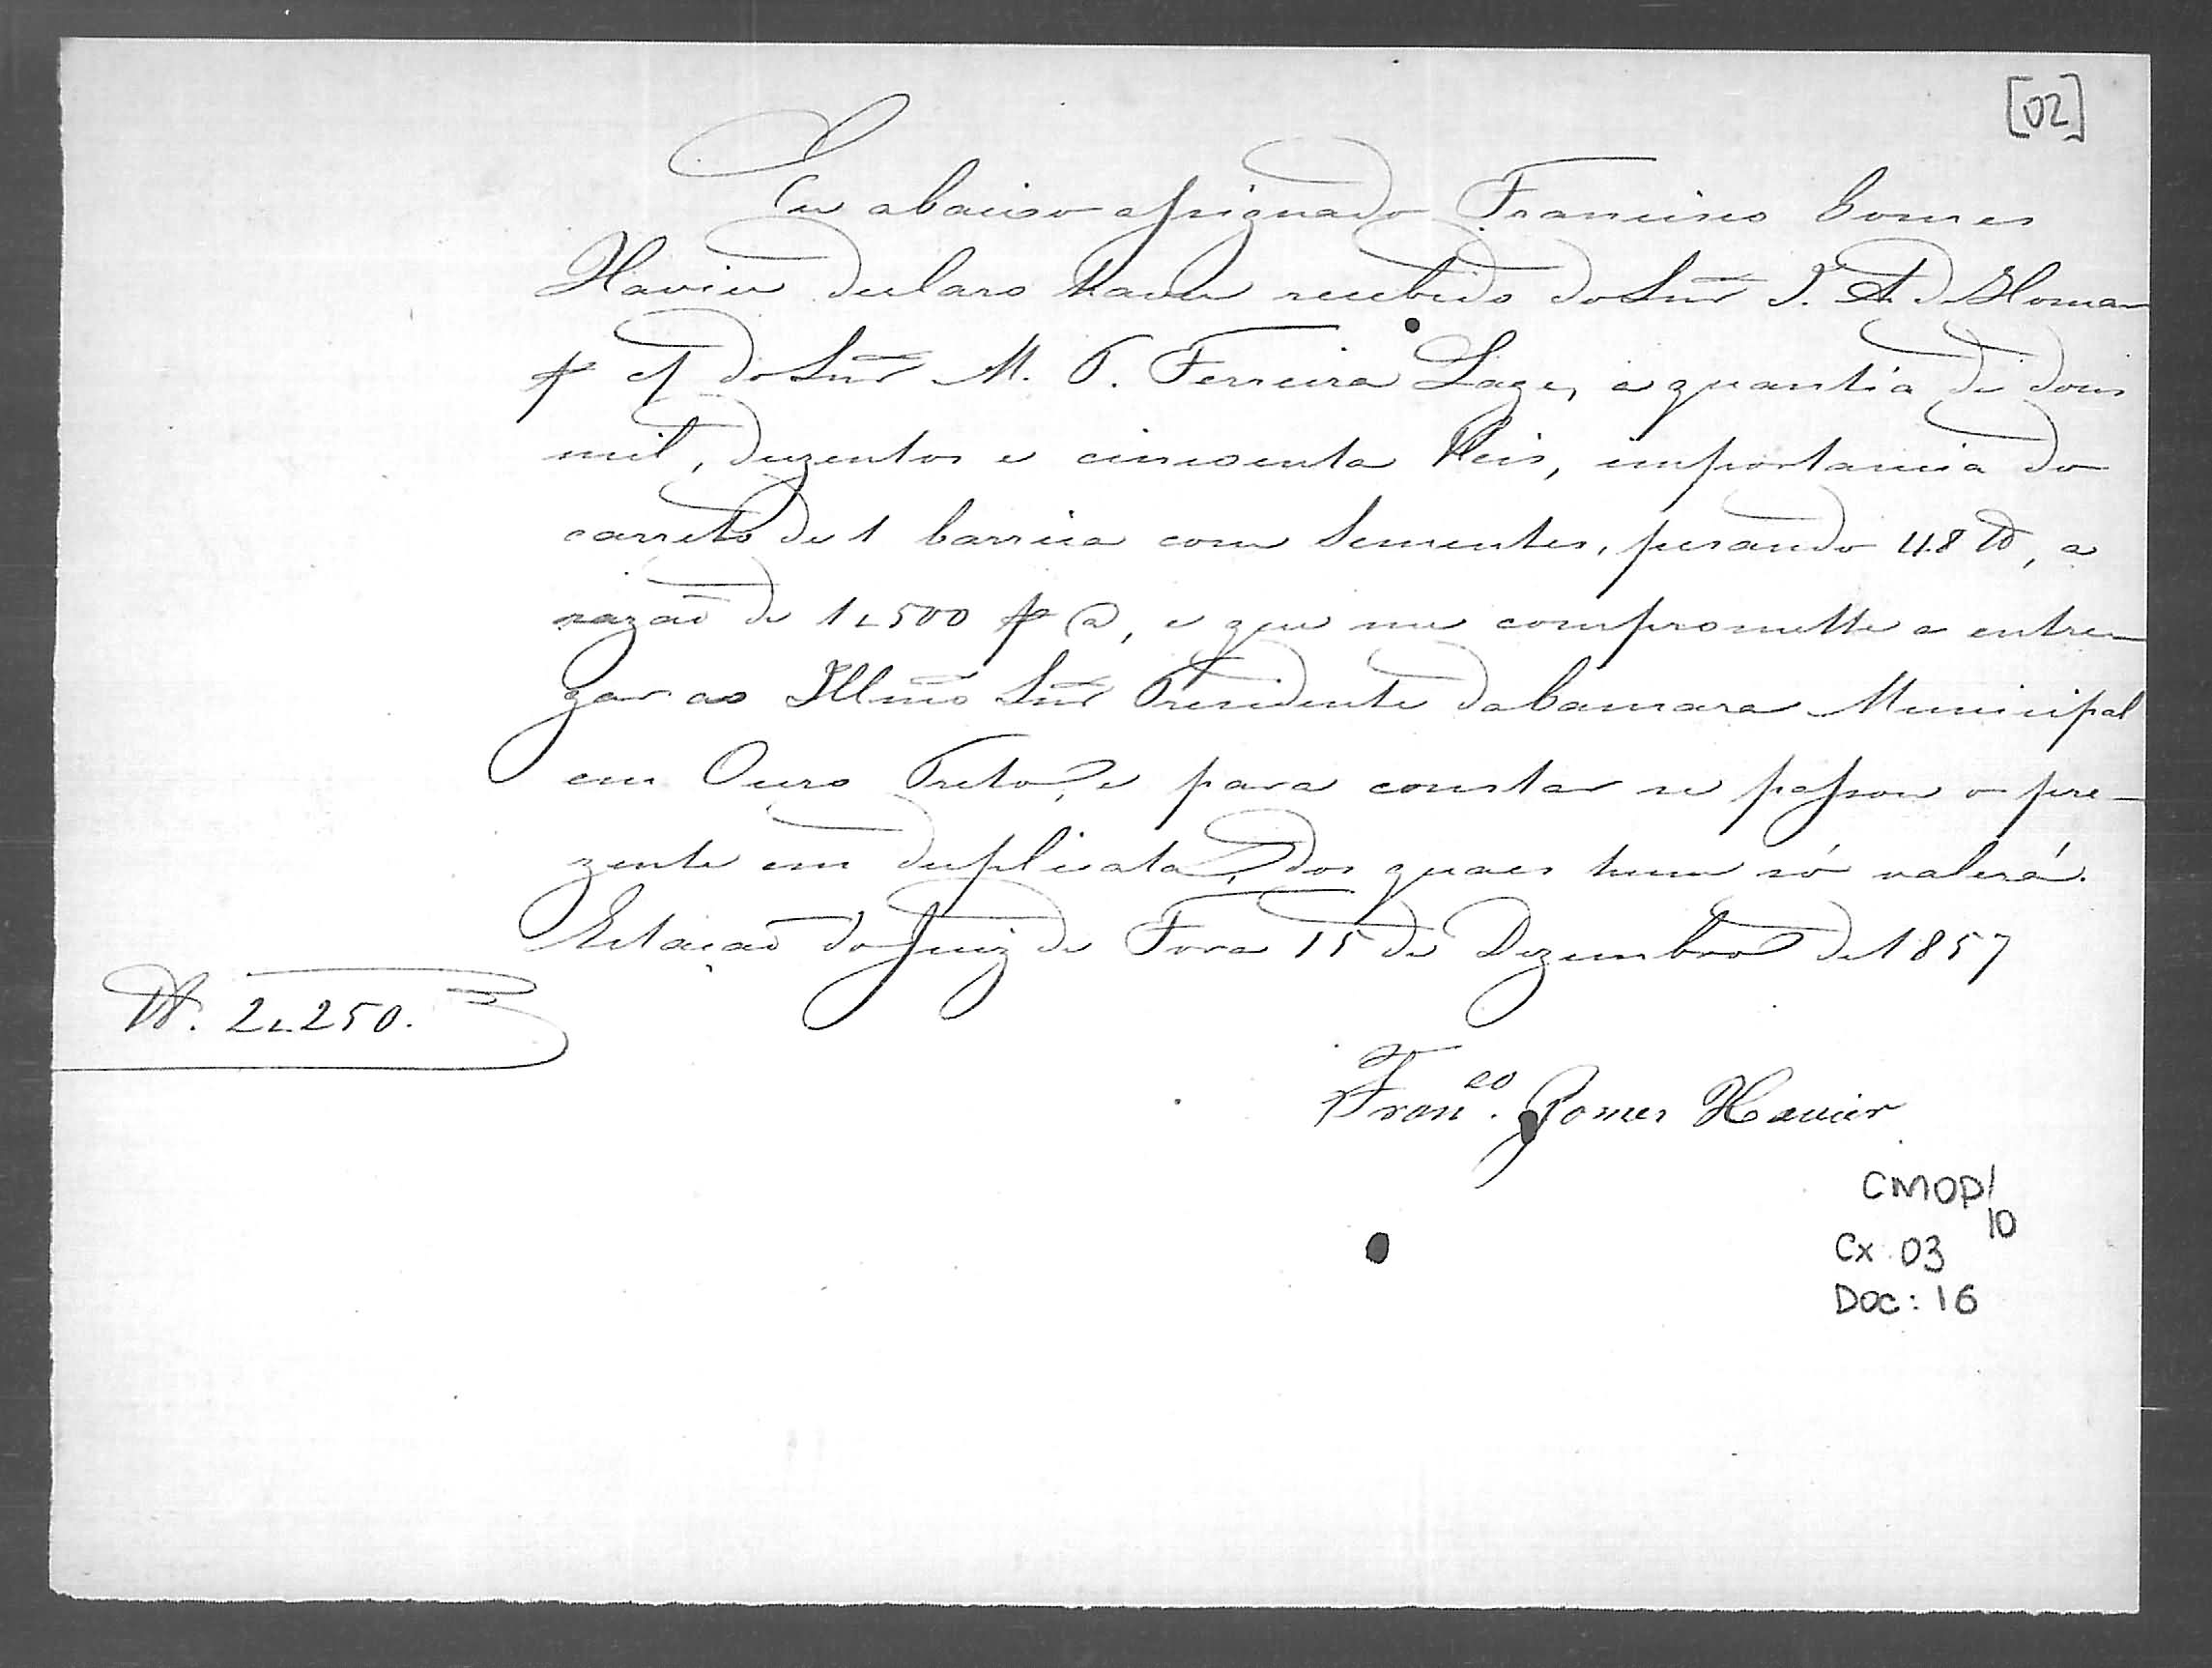 [02]
Eu abaixo assignado Francisco Gomes
Xavier declaro haver recebido do Snr J. A. de
p c/ do Snr M. P. Ferreira Lage, a quantia de dous
mil, duzentos e cincoenta Reis, importancia do
carreto de 1 barrica com Sementes, pesando 48 lb, a
razaõ de 1,,500 p @, e que me compromette a entre-
gar ao Illmo Snr Presidente da Camara Municipal
em Ouro Preto, e para constar se passou o pre-
zente em duplicata, dos quaes hum só valerá.
Estaçaõ do Juiz de Fora 15 de Dezembro de 1857
Rs. 2,,250.
Franco. Gomes Xavier
CMOP/
10
Cx 03
Doc: 16